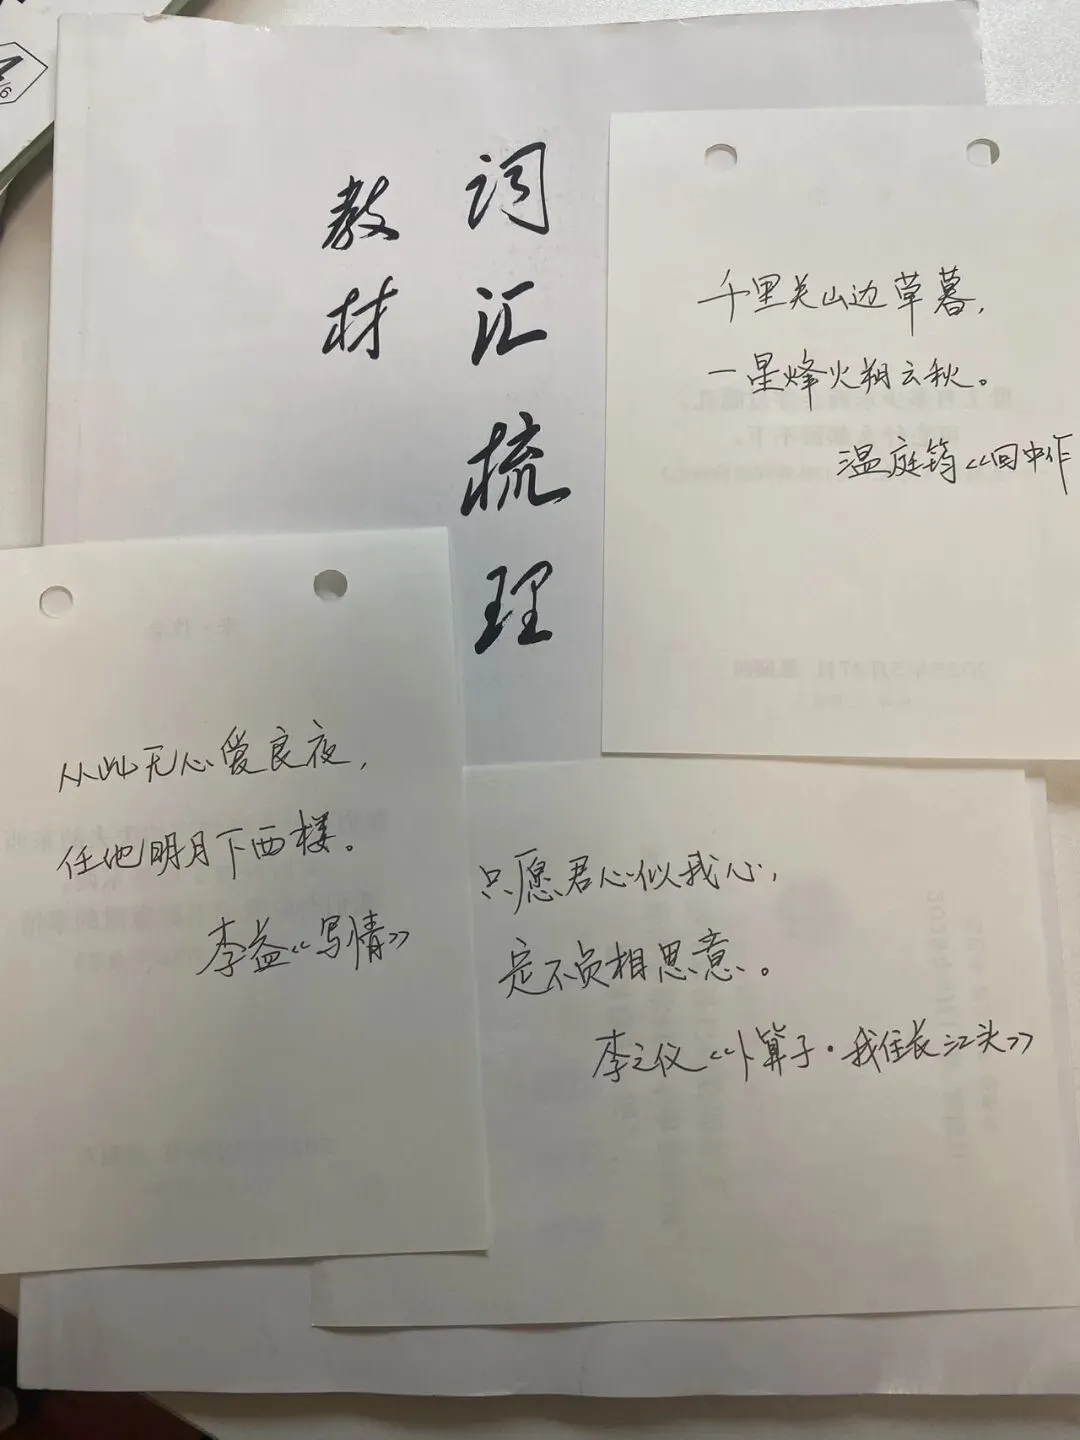 词汇梳理
教材
千里关山边草暮，
一星烽火朔云秋。
温庭筠《回中作
从此无心爱良夜，
任他明月下西楼。
李益《写情》
只愿君心似我心，
定不负相思意。
李之仪《卜算子·我住长江头》
6